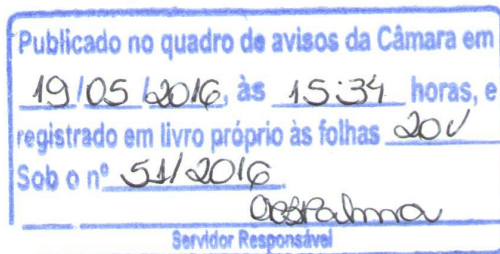 Publicado no quadro de avisos da Câmara em
19/05/2016, às 15:34 horas, e
registrado em livro próprio às folhas 20V
Sob o nº 51/2016
Servidor Responsável